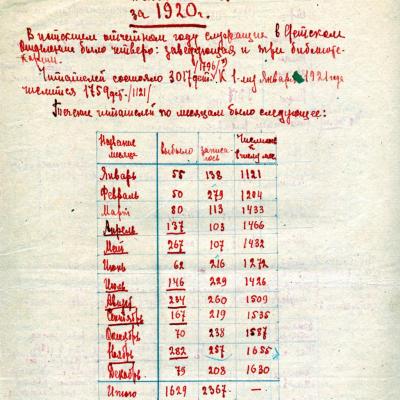 за 1920 г.
В истекшем отчетном году служащих в Детском
отделении было четверо: заведующая и три библиоте-
каря.
/1796/
Читателей состояло 3017 дет. К 1-му Января 1921 года
числится 1759 дет. /1121/
Течение читателей по месяцам было следующее:
Название месяца Выбыло записа-лось Числилось к 1 числу мес.
Январь 55 138 1121
Февраль 50 279 1204
Март 80 113 1433
Апрель 137 103 1466
Май 267 107 1432
Июнь 62 216 1272
Июль 146 229 1426
Август 234 260 1509
Сентябрь 167 219 1535
Октябрь 70 238 1587
Ноябрь 282 257 1655
Декабрь 79 208 1630
Итого 1629 2367 —